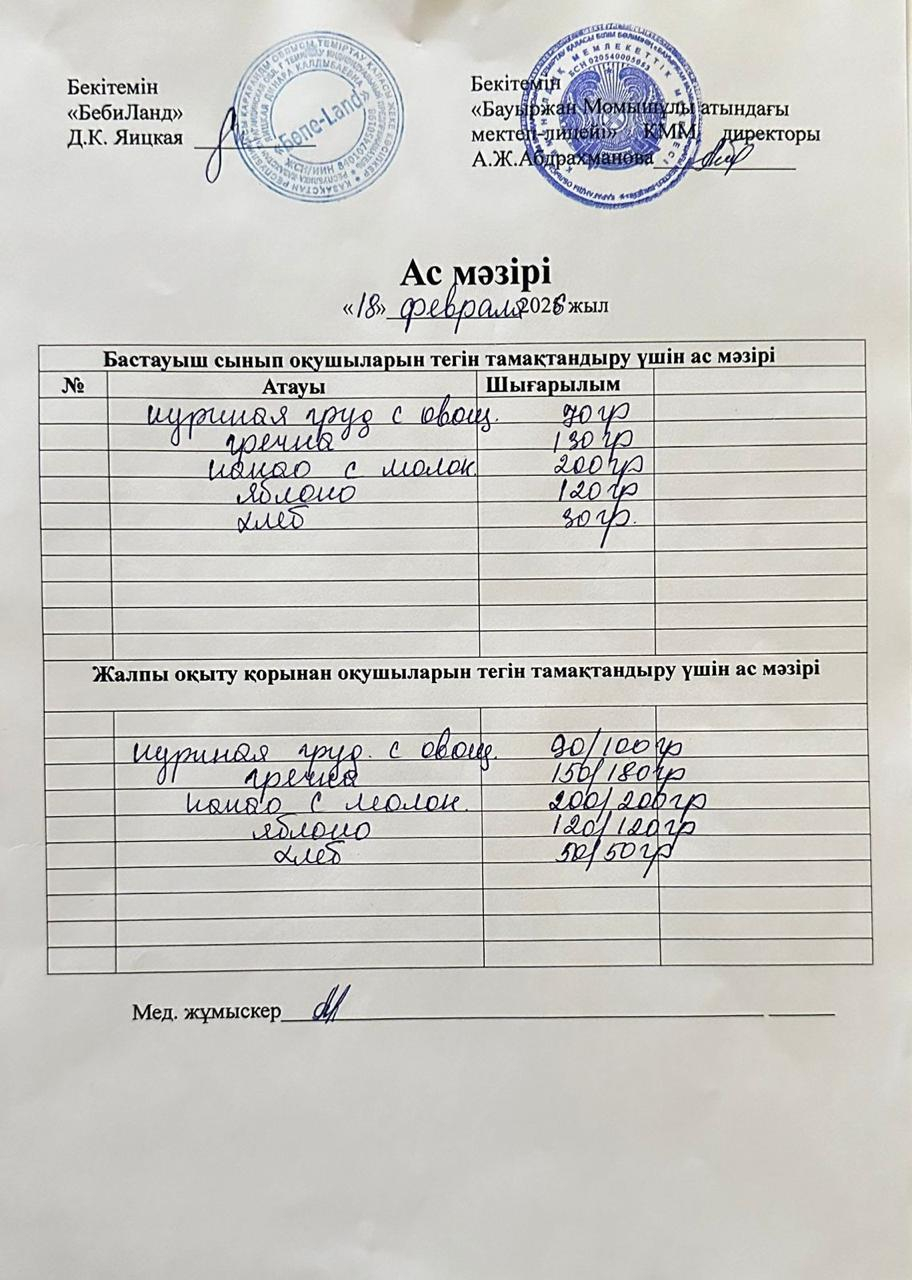 Бекітемін
«БебиЛанд»
Д.К. Яицкая
«Бөпе-Land»
ЖСН/ИИН
Бекітемін
«Бауыржан Момышұлы атындағы
мектеп-лицейі» КММ директоры
А.Ж.Абдрахманова
БСН 020540005053
Ас мәзірі
«18» февраля 2026 жыл
Бастауыш сынып оқушыларын тегін тамақтандыру үшін ас мәзірі
№ Атауы Шығарылым
куриная груд с овощ. 90 гр
гречка 130 гр
какао с молок 200 гр
яблоко 120 гр
хлеб 30 гр.
Жалпы оқыту қорынан оқушыларын тегін тамақтандыру үшін ас мәзірі
куриная груд. с овощ. 90/100 гр
гречка 150/180 гр
какао с молок. 200/200 гр
яблоко 120/120 гр
хлеб 50/50 гр
Мед. жұмыскер